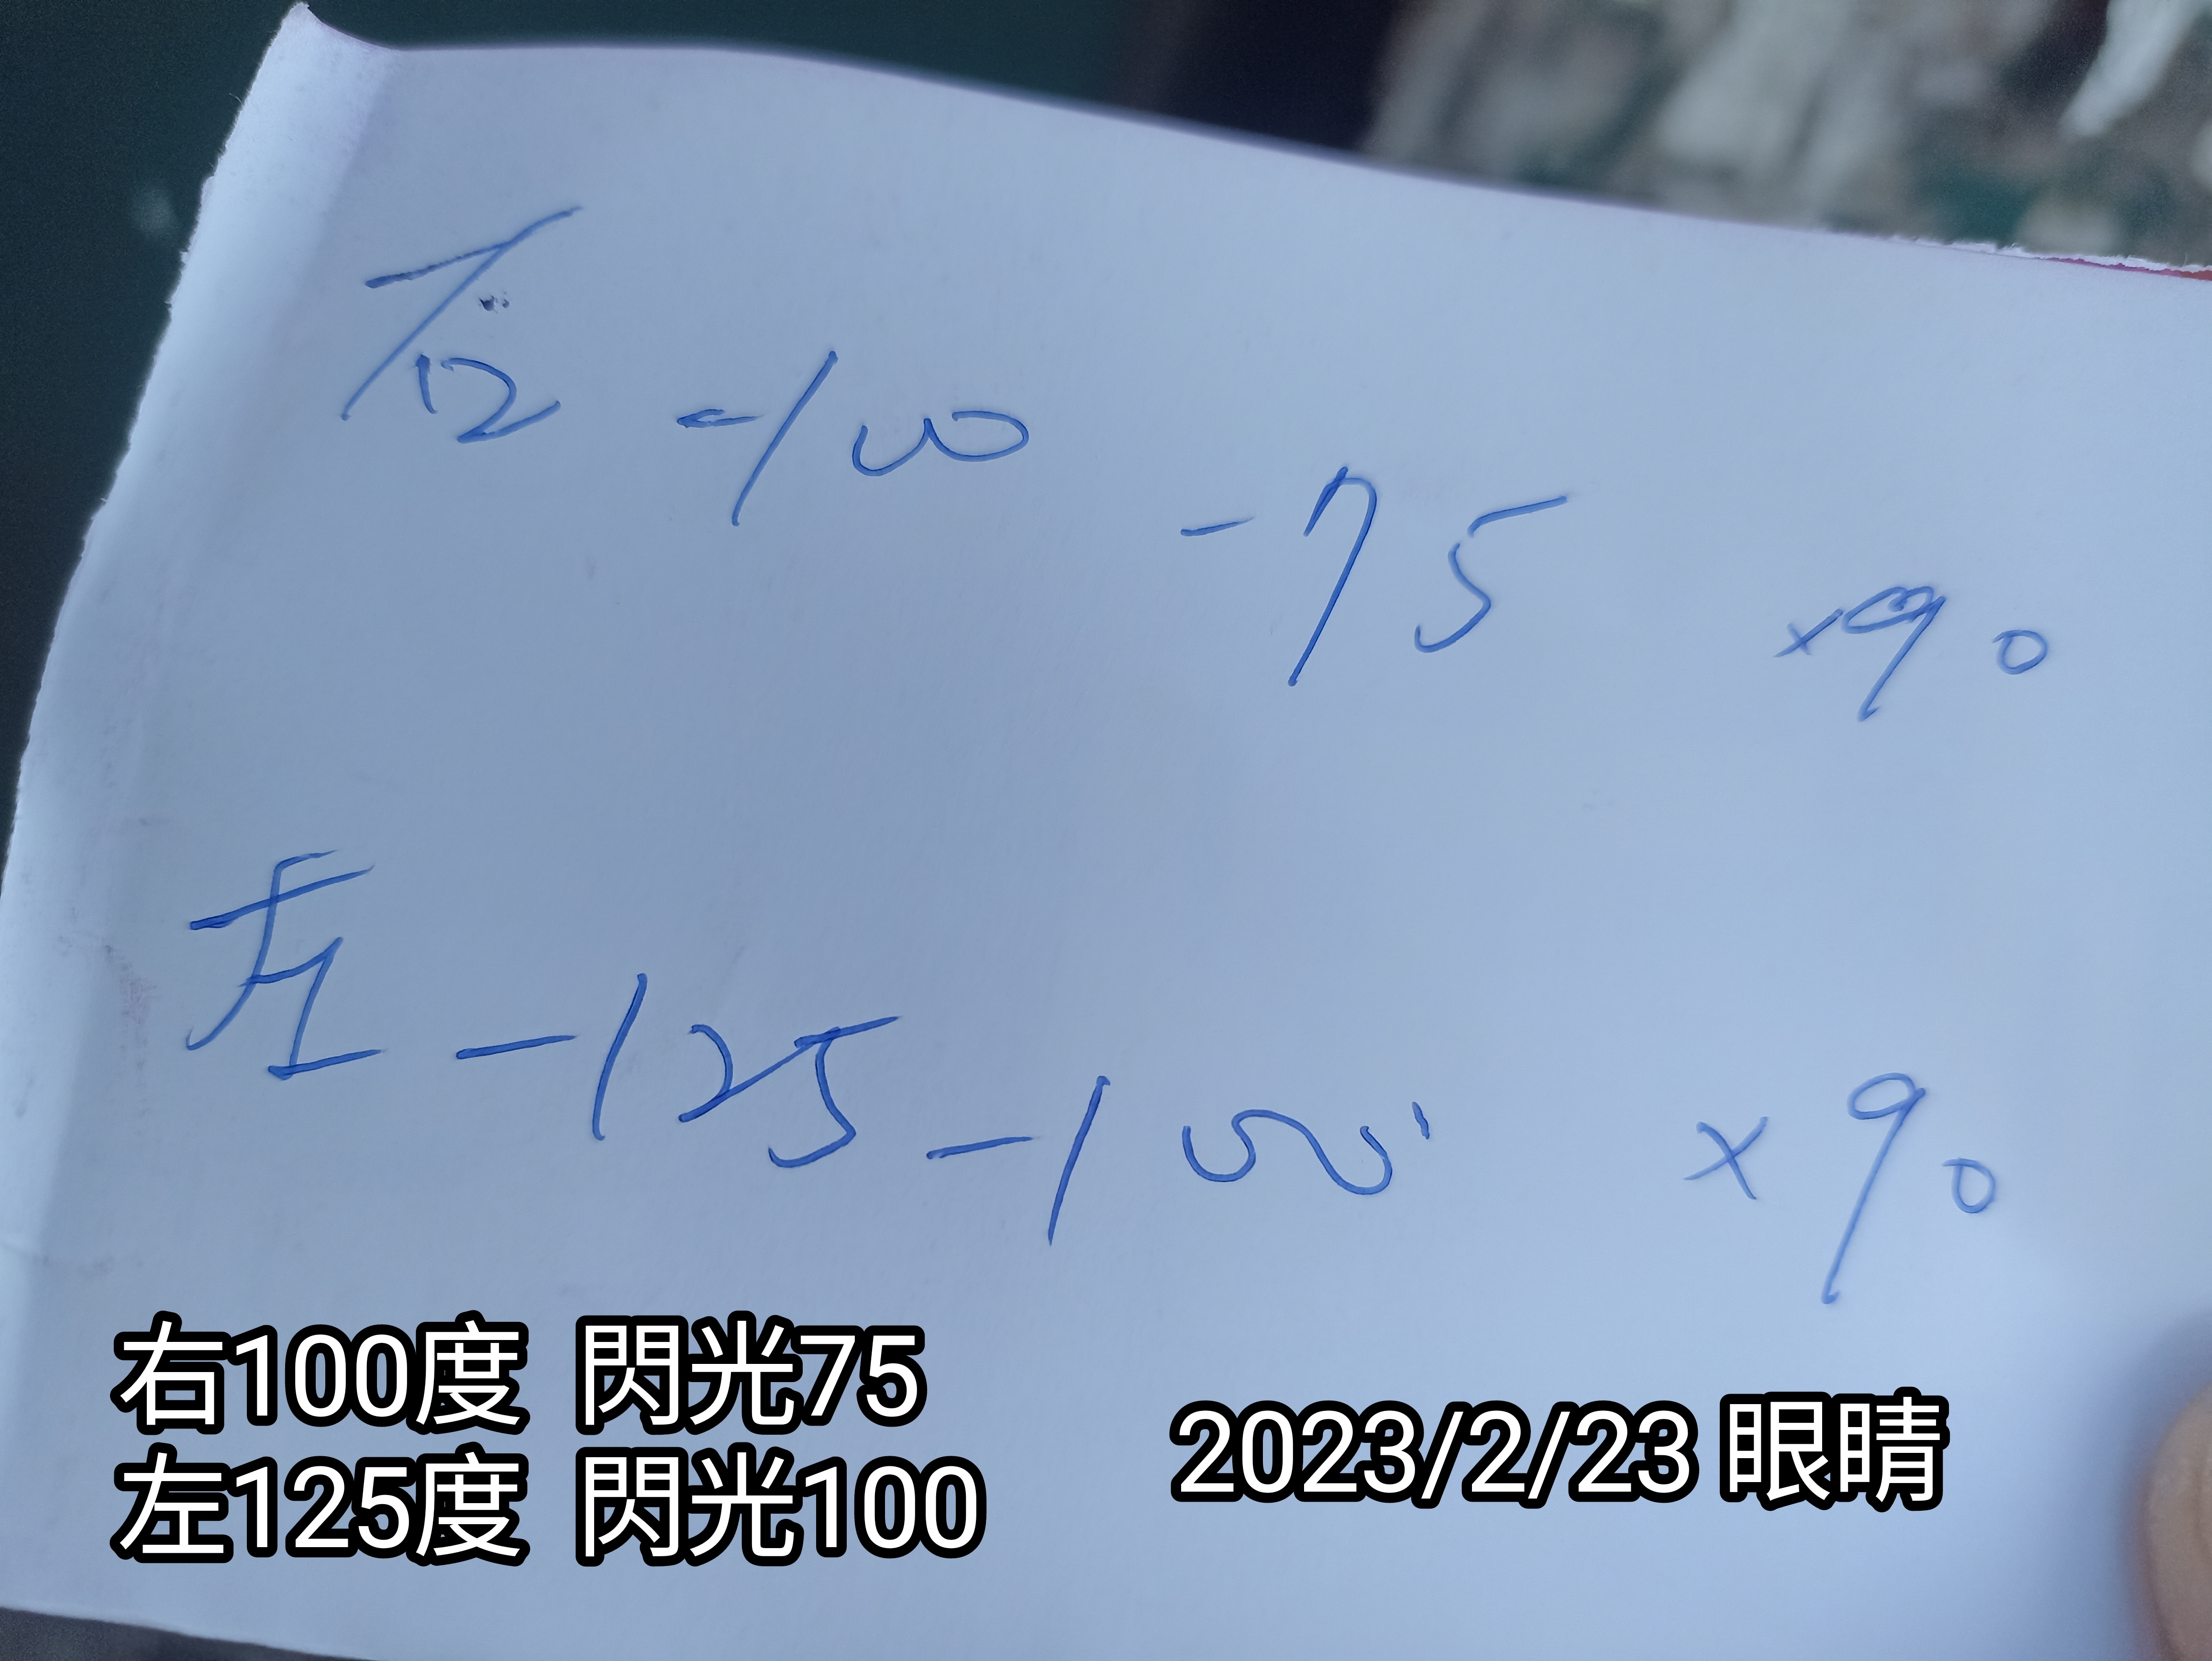 右 -100 -75 x90
左 -125 -100 x90
右100度 閃光75
左125度 閃光100
2023/2/23 眼睛